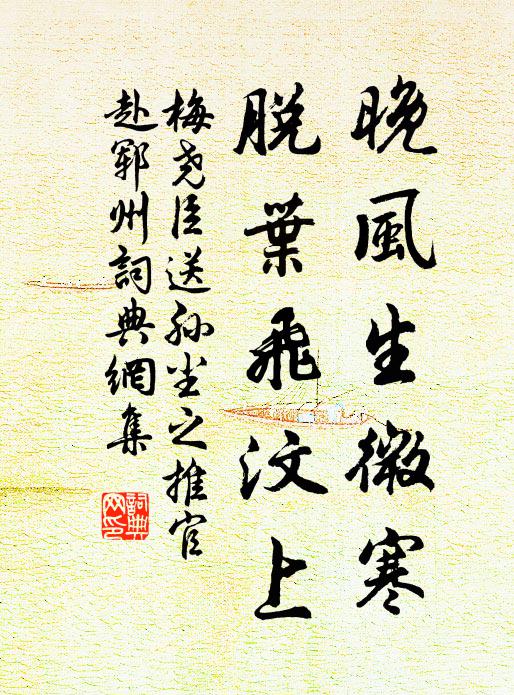 晚風生微寒
脫葉飛汶上
梅堯臣送孫坐之推官
赴鄆州詞典網集
詞典
网印